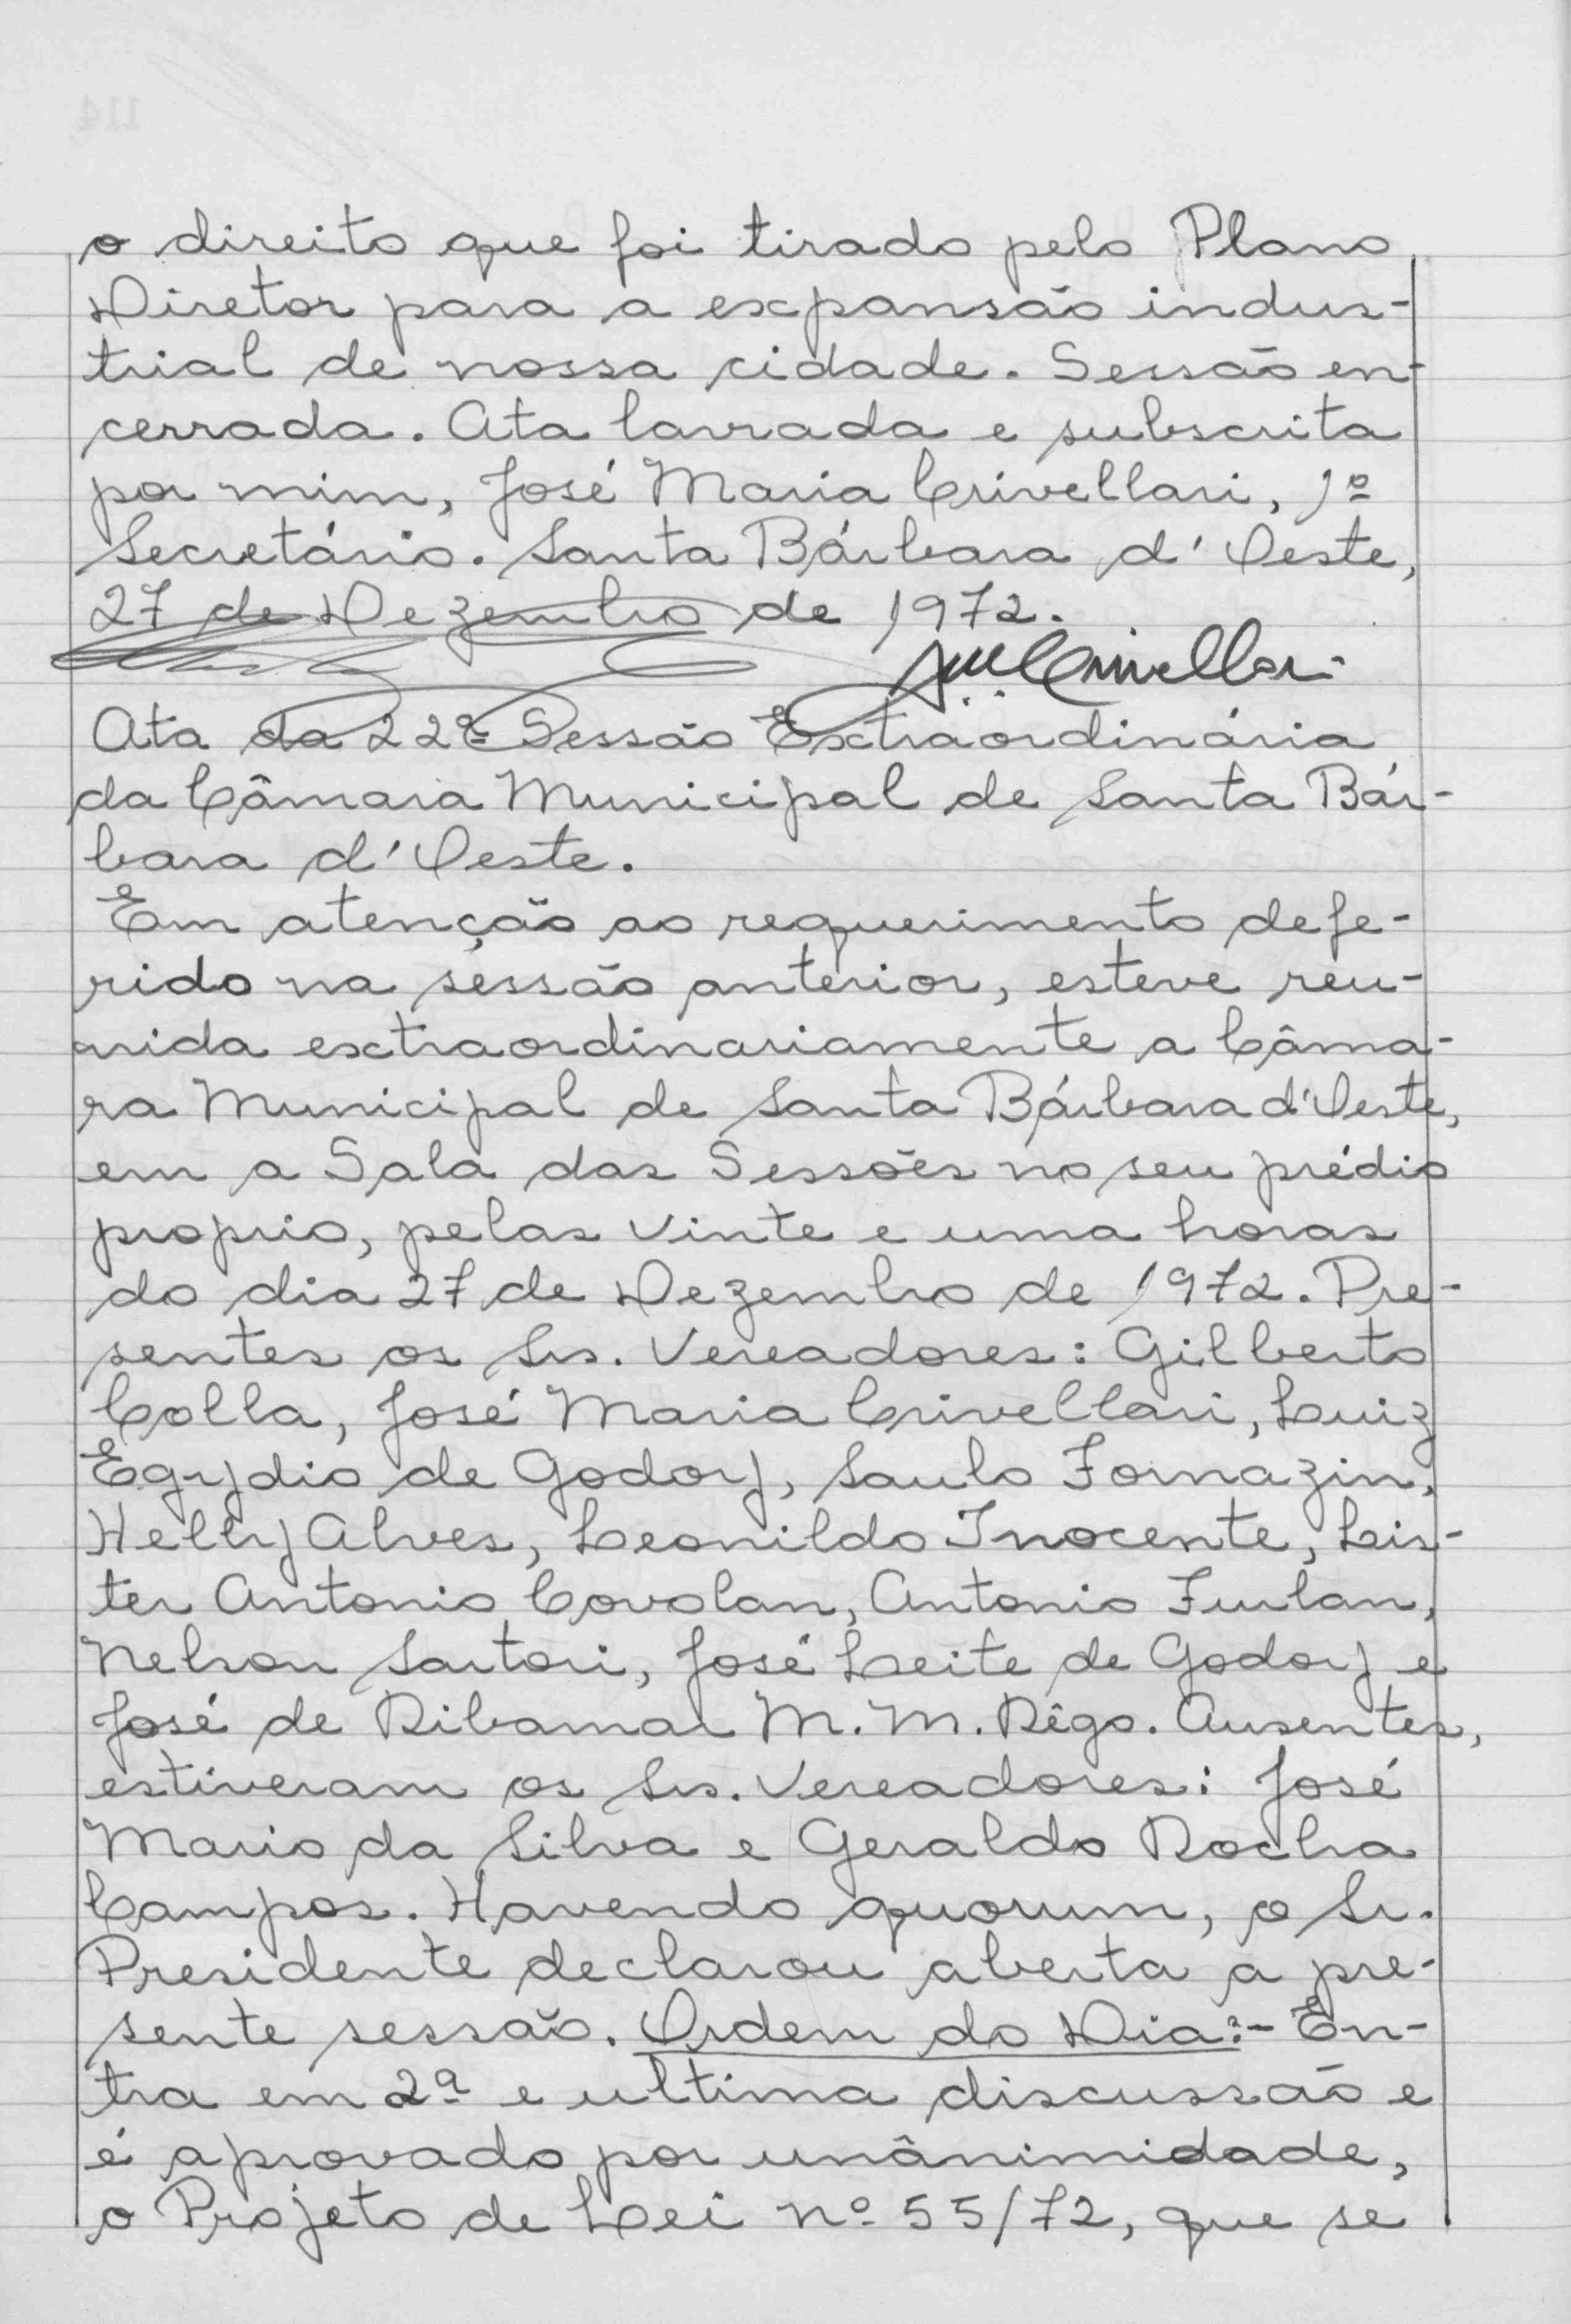 o direito que foi tirado pelo Plano
Diretor para a expansão indus-
trial de nossa cidade. Sessão en-
cerrada. Ata lavrada e subscrita
por mim, José Maria Crivellari, 1º
Secretário. Santa Bárbara d'Oeste,
27 de Dezembro de 1972.
Ata da 22ª Sessão Extraordinária
da Câmara Municipal de Santa Bár-
bara d'Oeste.
Em atenção ao requerimento defe-
rido na sessão anterior, esteve reu-
nida extraordinariamente a Câma-
ra Municipal de Santa Bárbara d'Oeste,
em a Sala das Sessões no seu prédio
proprio, pelas vinte e uma horas
do dia 27 de Dezembro de 1972. Pre-
sentes os Srs. Vereadores: Gilberto
Colla, José Maria Crivellari, Luiz
Egydio de Godoy, Saulo Fornazin,
Helly Alves, Leonildo Inocente, Lis-
ter Antonio Covolan, Antonio Furlan,
Nelson Sartori, José Leite de Godoy e
José de Ribamar M. M. Rêgo. Ausentes,
estiveram os Srs. Vereadores: José
Mario da Silva e Geraldo Rocha
Campos. Havendo quorum, o Sr.
Presidente declarou aberta a pre-
sente sessão. Ordem do Dia:- En-
tra em 2ª e ultima discussão e
é aprovado por unânimidade,
o Projeto de Lei nº 55/72, que se